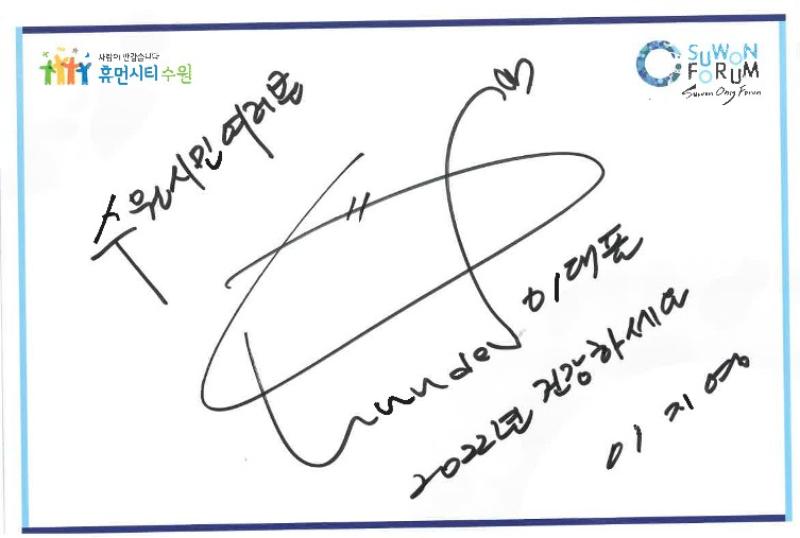 사람이 반갑습니다
휴먼시티 수원
SUWON
FORUM
Suwon Only Forum
수원시민여러분
2022년 건강하세요
이지영